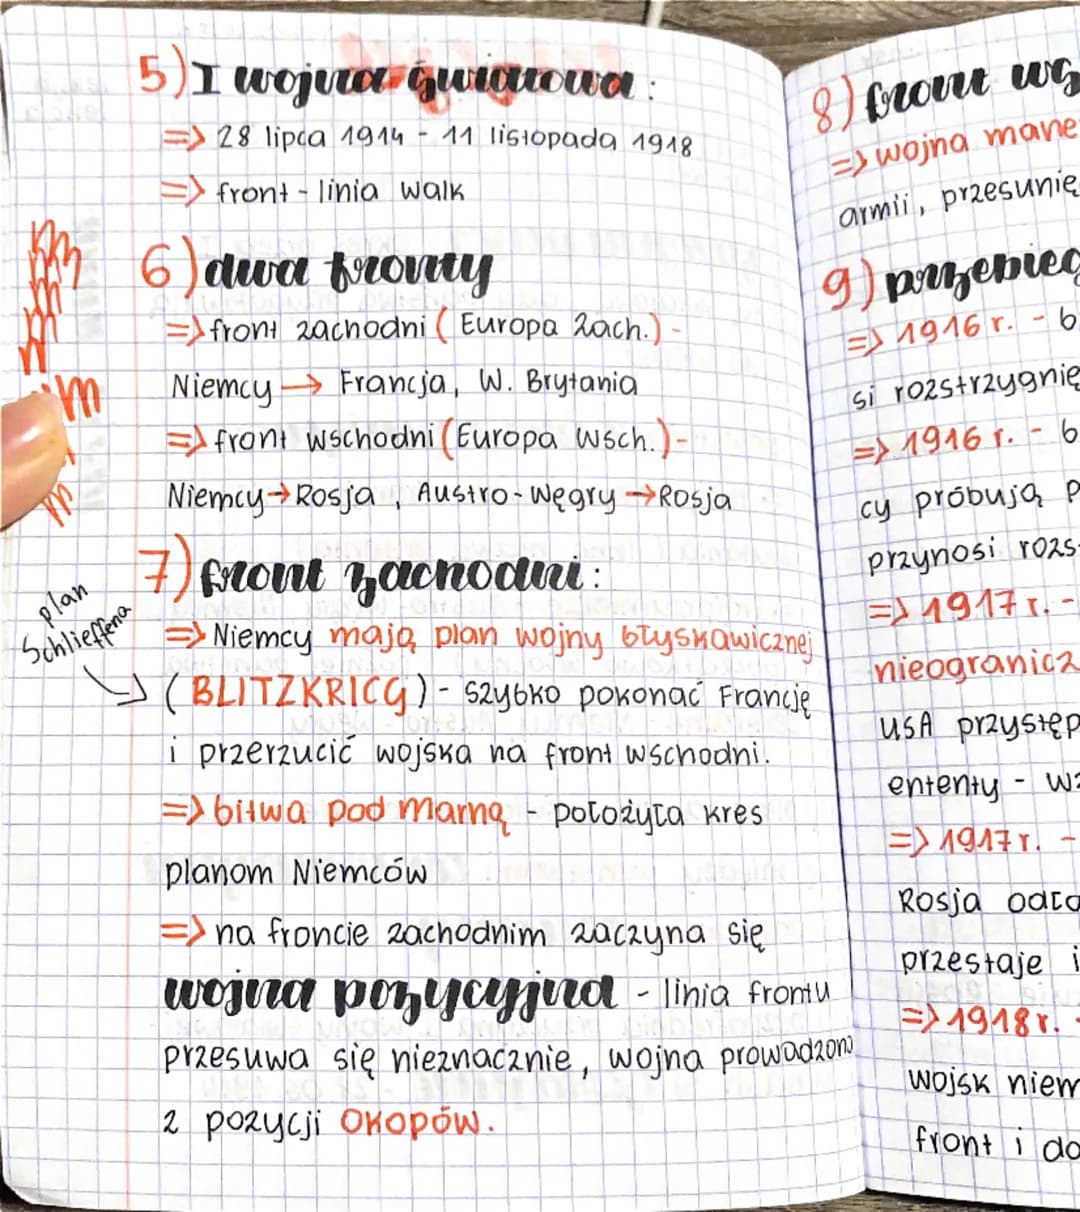 5) I wojna światowa :
=> 28 lipca 1914 - 11 listopada 1918
=> front - linia walk
6) dwa fronty
=> front zachodni ( Europa Zach.) -
Niemcy → Francja, W. Brytania
=> front wschodni (Europa Wsch.) -
Niemcy → Rosja , Austro-Węgry → Rosja
7) front zachodni :
plan
Schlieffena
=> Niemcy mają plan wojny błyskawicznej
( BLITZKRICG ) - szybko pokonać Francję
i przerzucić wojska na front wschodni.
=> bitwa pod Marną - położyła kres
planom Niemców
=> na froncie zachodnim zaczyna się
wojna pozycyjna - linia frontu
przesuwa się nieznacznie, wojna prowadzona
z pozycji OKOPÓW.
8) front
=> wojna
armii, przesunię
9) przebieg
=> 1916 r. - b
si rozstrzygnię
=> 1916 r. - b
cy próbują p
przynosi rozs
=> 1917 r. -
nieogranicz
USA przystęp
ententy -
=> 1917 r. -
Rosja odda
przestaje i
=> 1918 r. -
wojsk niem
front i do